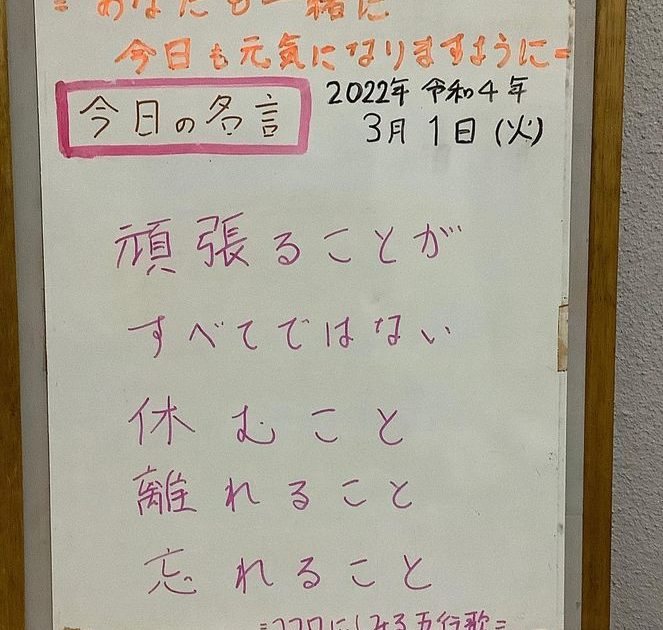 =あなたも一緒に
今日も元気になりますように=
今日の名言
2022年 令和4年
3月1日(火)
頑張ることが
すべてではない
休むこと
離れること
忘れること
=ココロにしみる五行歌=